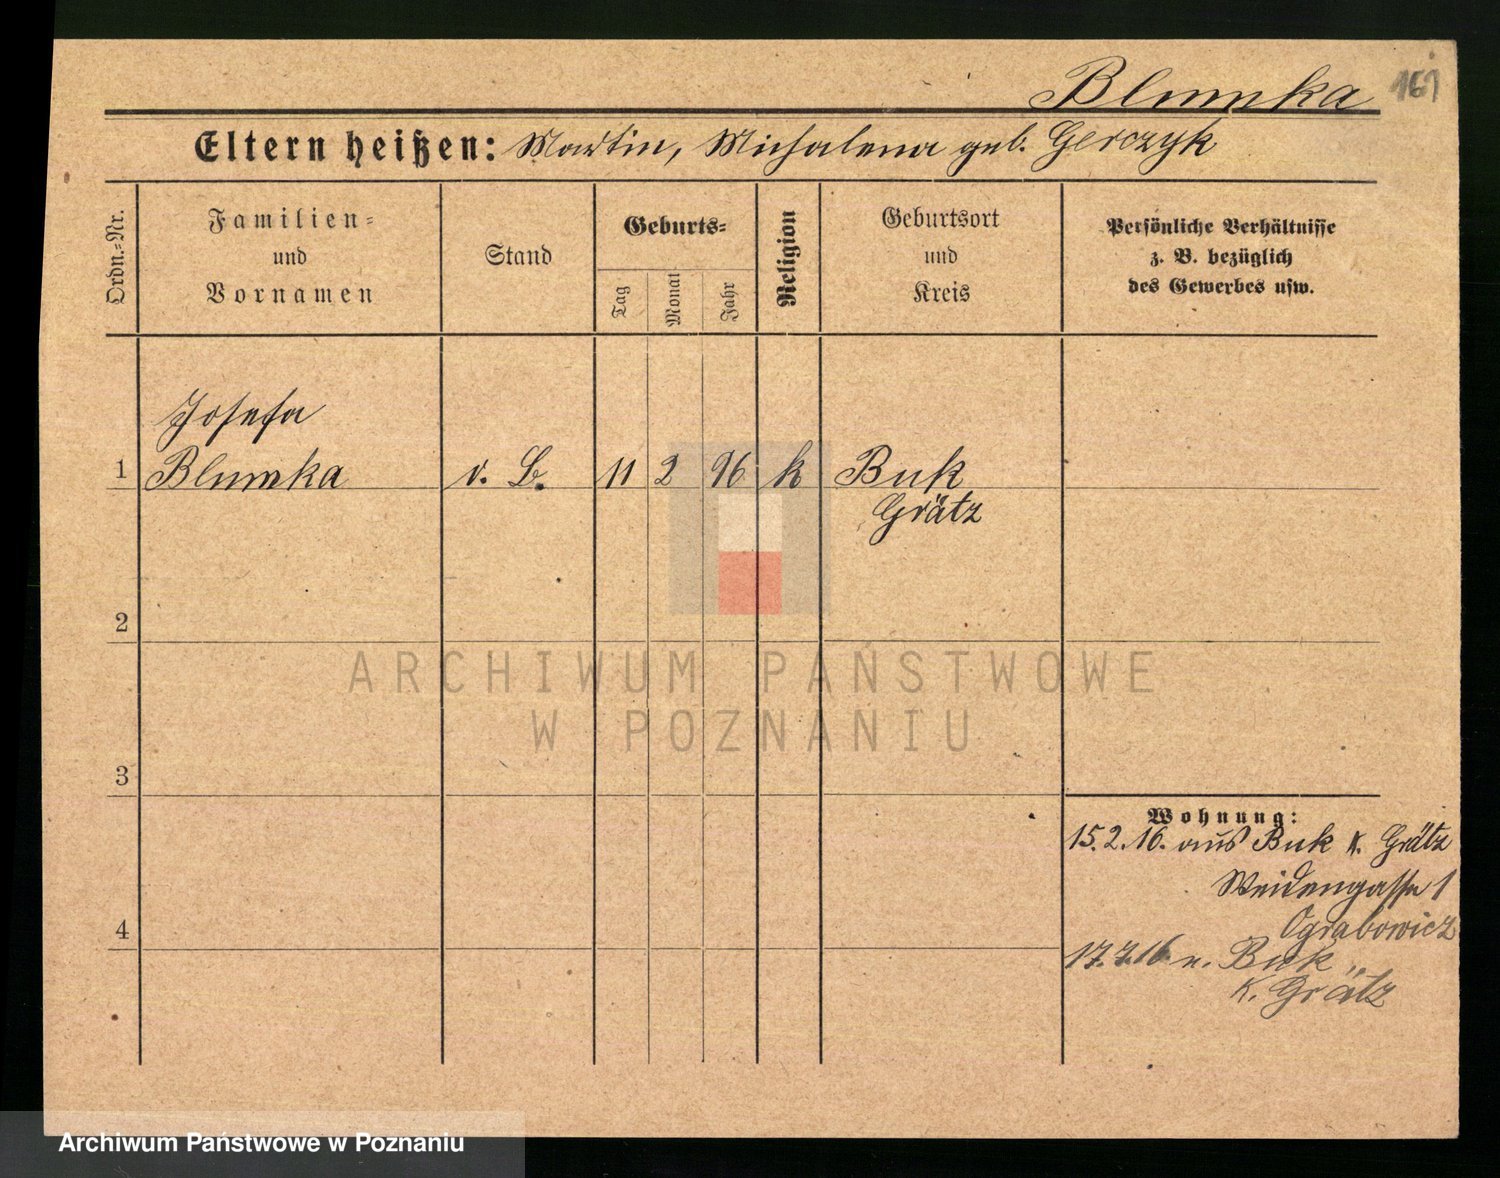 Blumka 161
Eltern heißen: Martin, Michalena geb. Gerczyk
Ordn.-Nr.
Familien-
und
Vornamen
Stand
Geburts-
Tag
Monat
Jahr
Religion
Geburtsort
und
Kreis
Persönliche Verhältnisse
z. B. bezüglich
des Gewerbes usw.
Josefa
1 Blumka v. B. 11 2 96 k Buk
Grätz
2
ARCHIWUM PAŃSTWOWE
W POZNANIU
3
Wohnung:
15.2.16. aus Buk K. Grätz
Weidengasse 1
Ograbowicz
4
17.7.16 n. Buk
K. Grätz
Archiwum Państwowe w Poznaniu